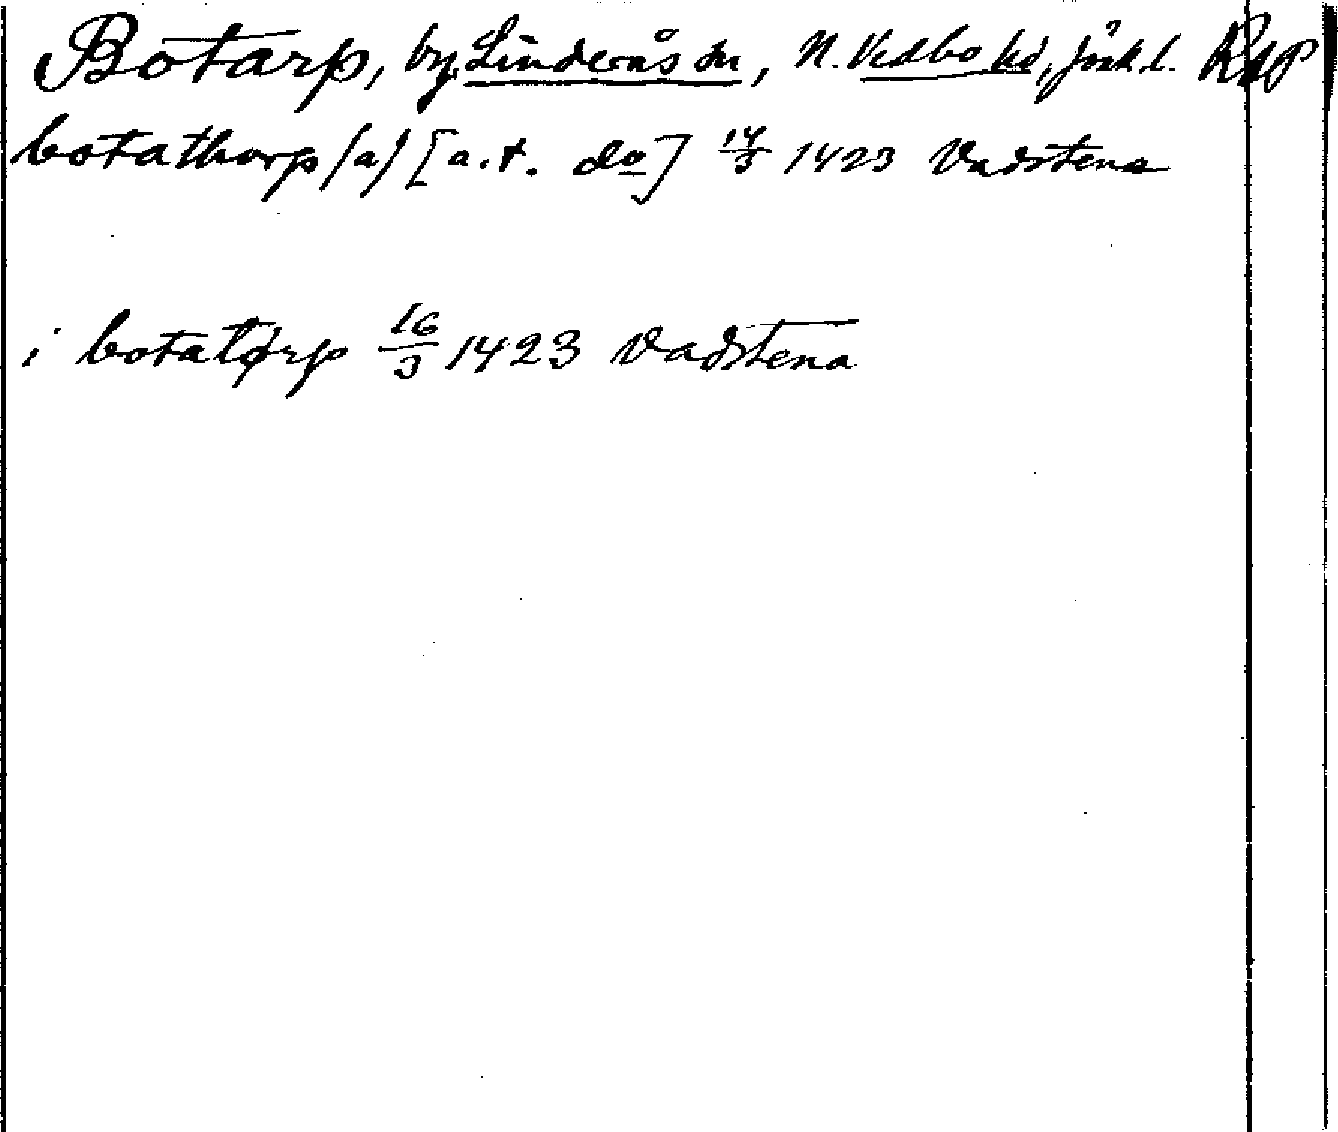 Botarp, by, Linderås sn, N. Vedbo hd, Jönk. l. RAP
botathorp (a) [a.t. do] 14/3 1423 Vadstena
i botatørp 16/3 1423 Vadstena